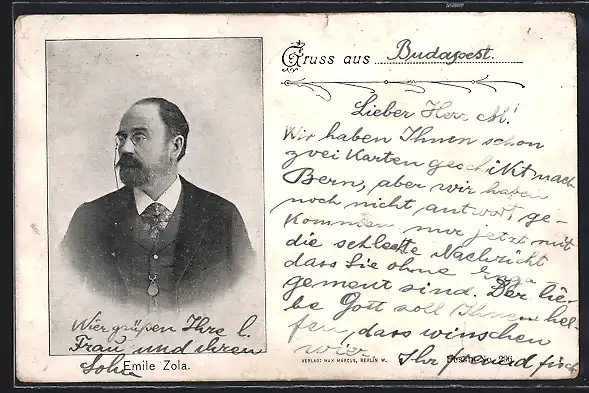 Gruss aus Budapest.
Lieber Herr M!
Wir haben Ihnen schon
zwei Karten geschikt nach
Bern, aber wir haben
noch nicht antwort ge-
kommen nur jetzt mit
die schlechte Nachricht
dass Sie ohne Enga
gement sind. Der lie-
be Gott soll Ihnen hel-
fen, dass winschen
wier. Ihr freund fisch
Wier grüßen Ihre l.
Frau und ihren
Sohn
Emile Zola.
VERLAG: MAX MARCUS, BERLIN W.